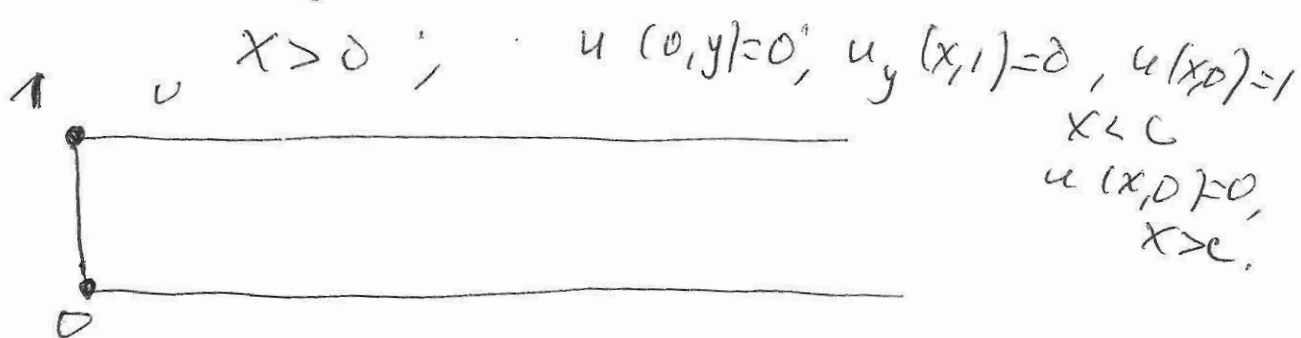 x > 0 ; u(0,y)=0; u_y(x,1)=0, u(x,0)=1
x < c
1
u(x,0)=0,
x>c.
0